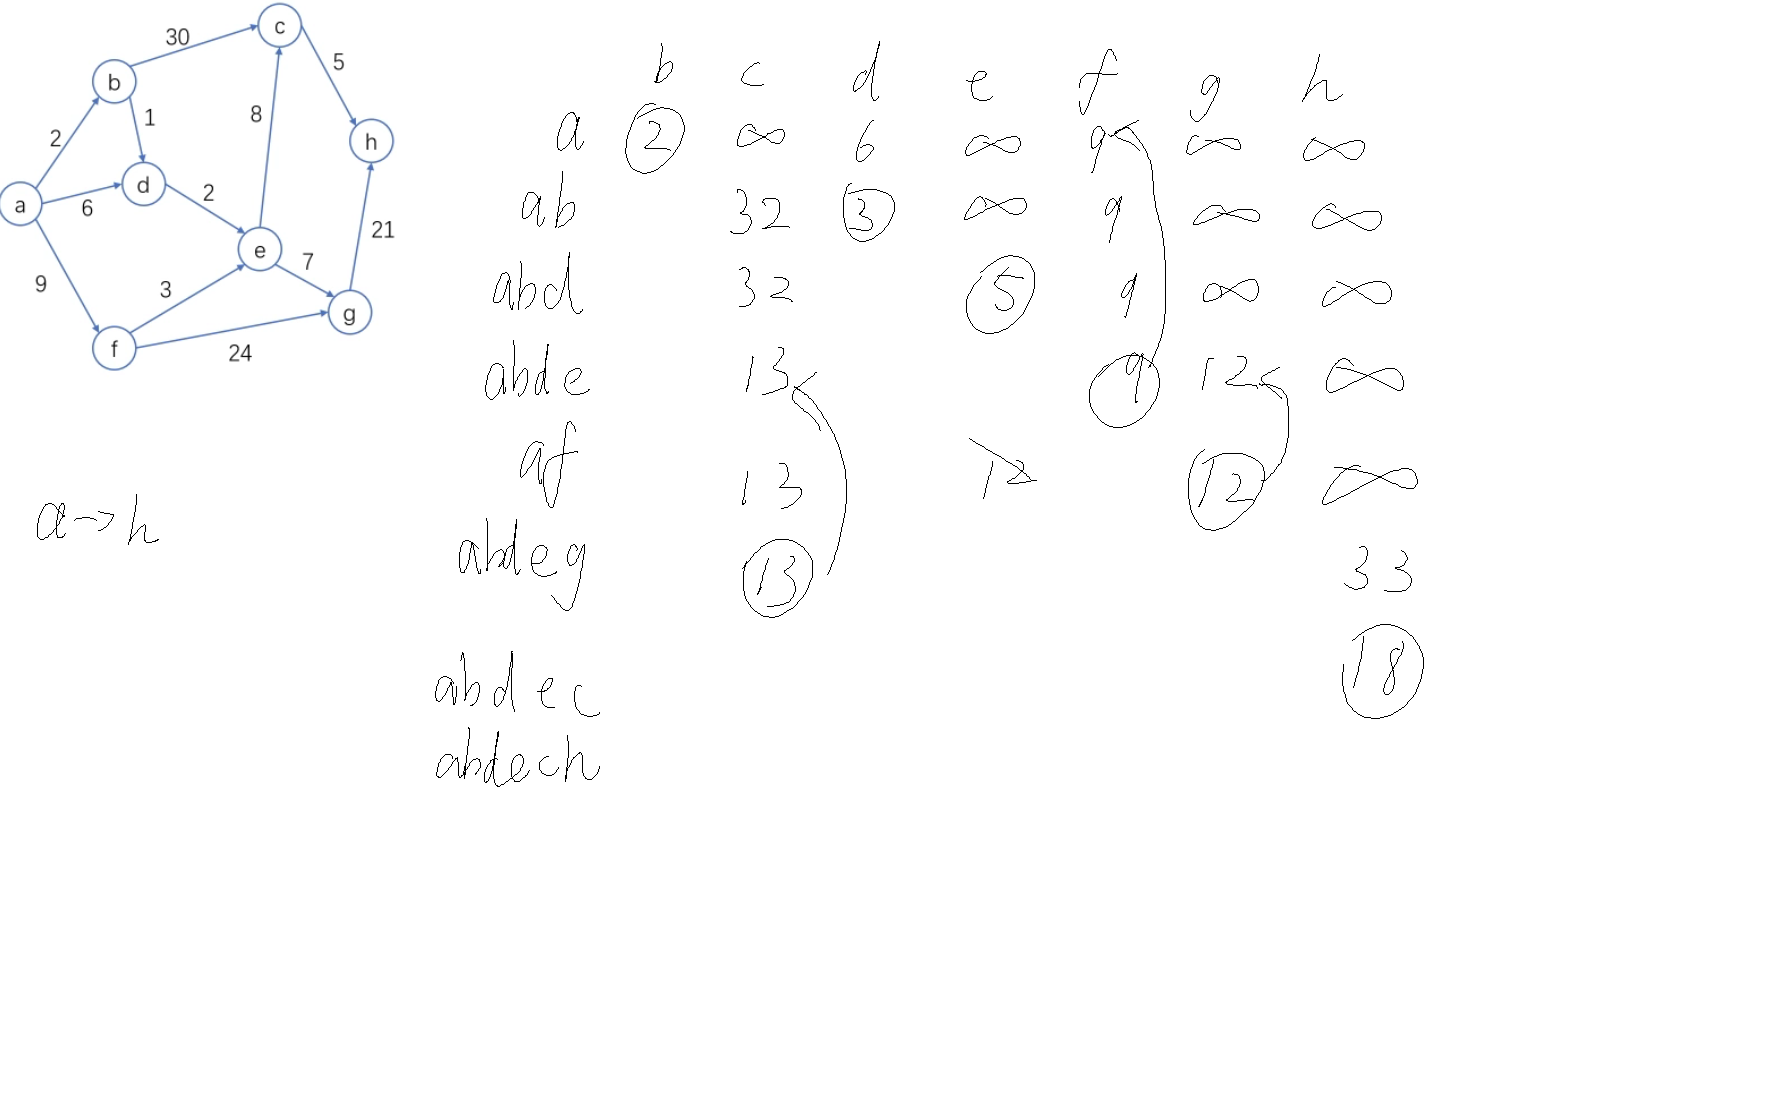 30
c
5
b
1
8
h
2
d
2
a
6
21
e
7
9
3
g
f
24
a→h
b c d e f g h
a 2 ∞ 6 ∞ 9 ∞ ∞
ab 32 3 ∞ 9 ∞ ∞
abd 32 5 9 ∞ ∞
abde 13 9 12 ∞
af 13 12 12 ∞
abdeg 13 33
abdec 18
abdech